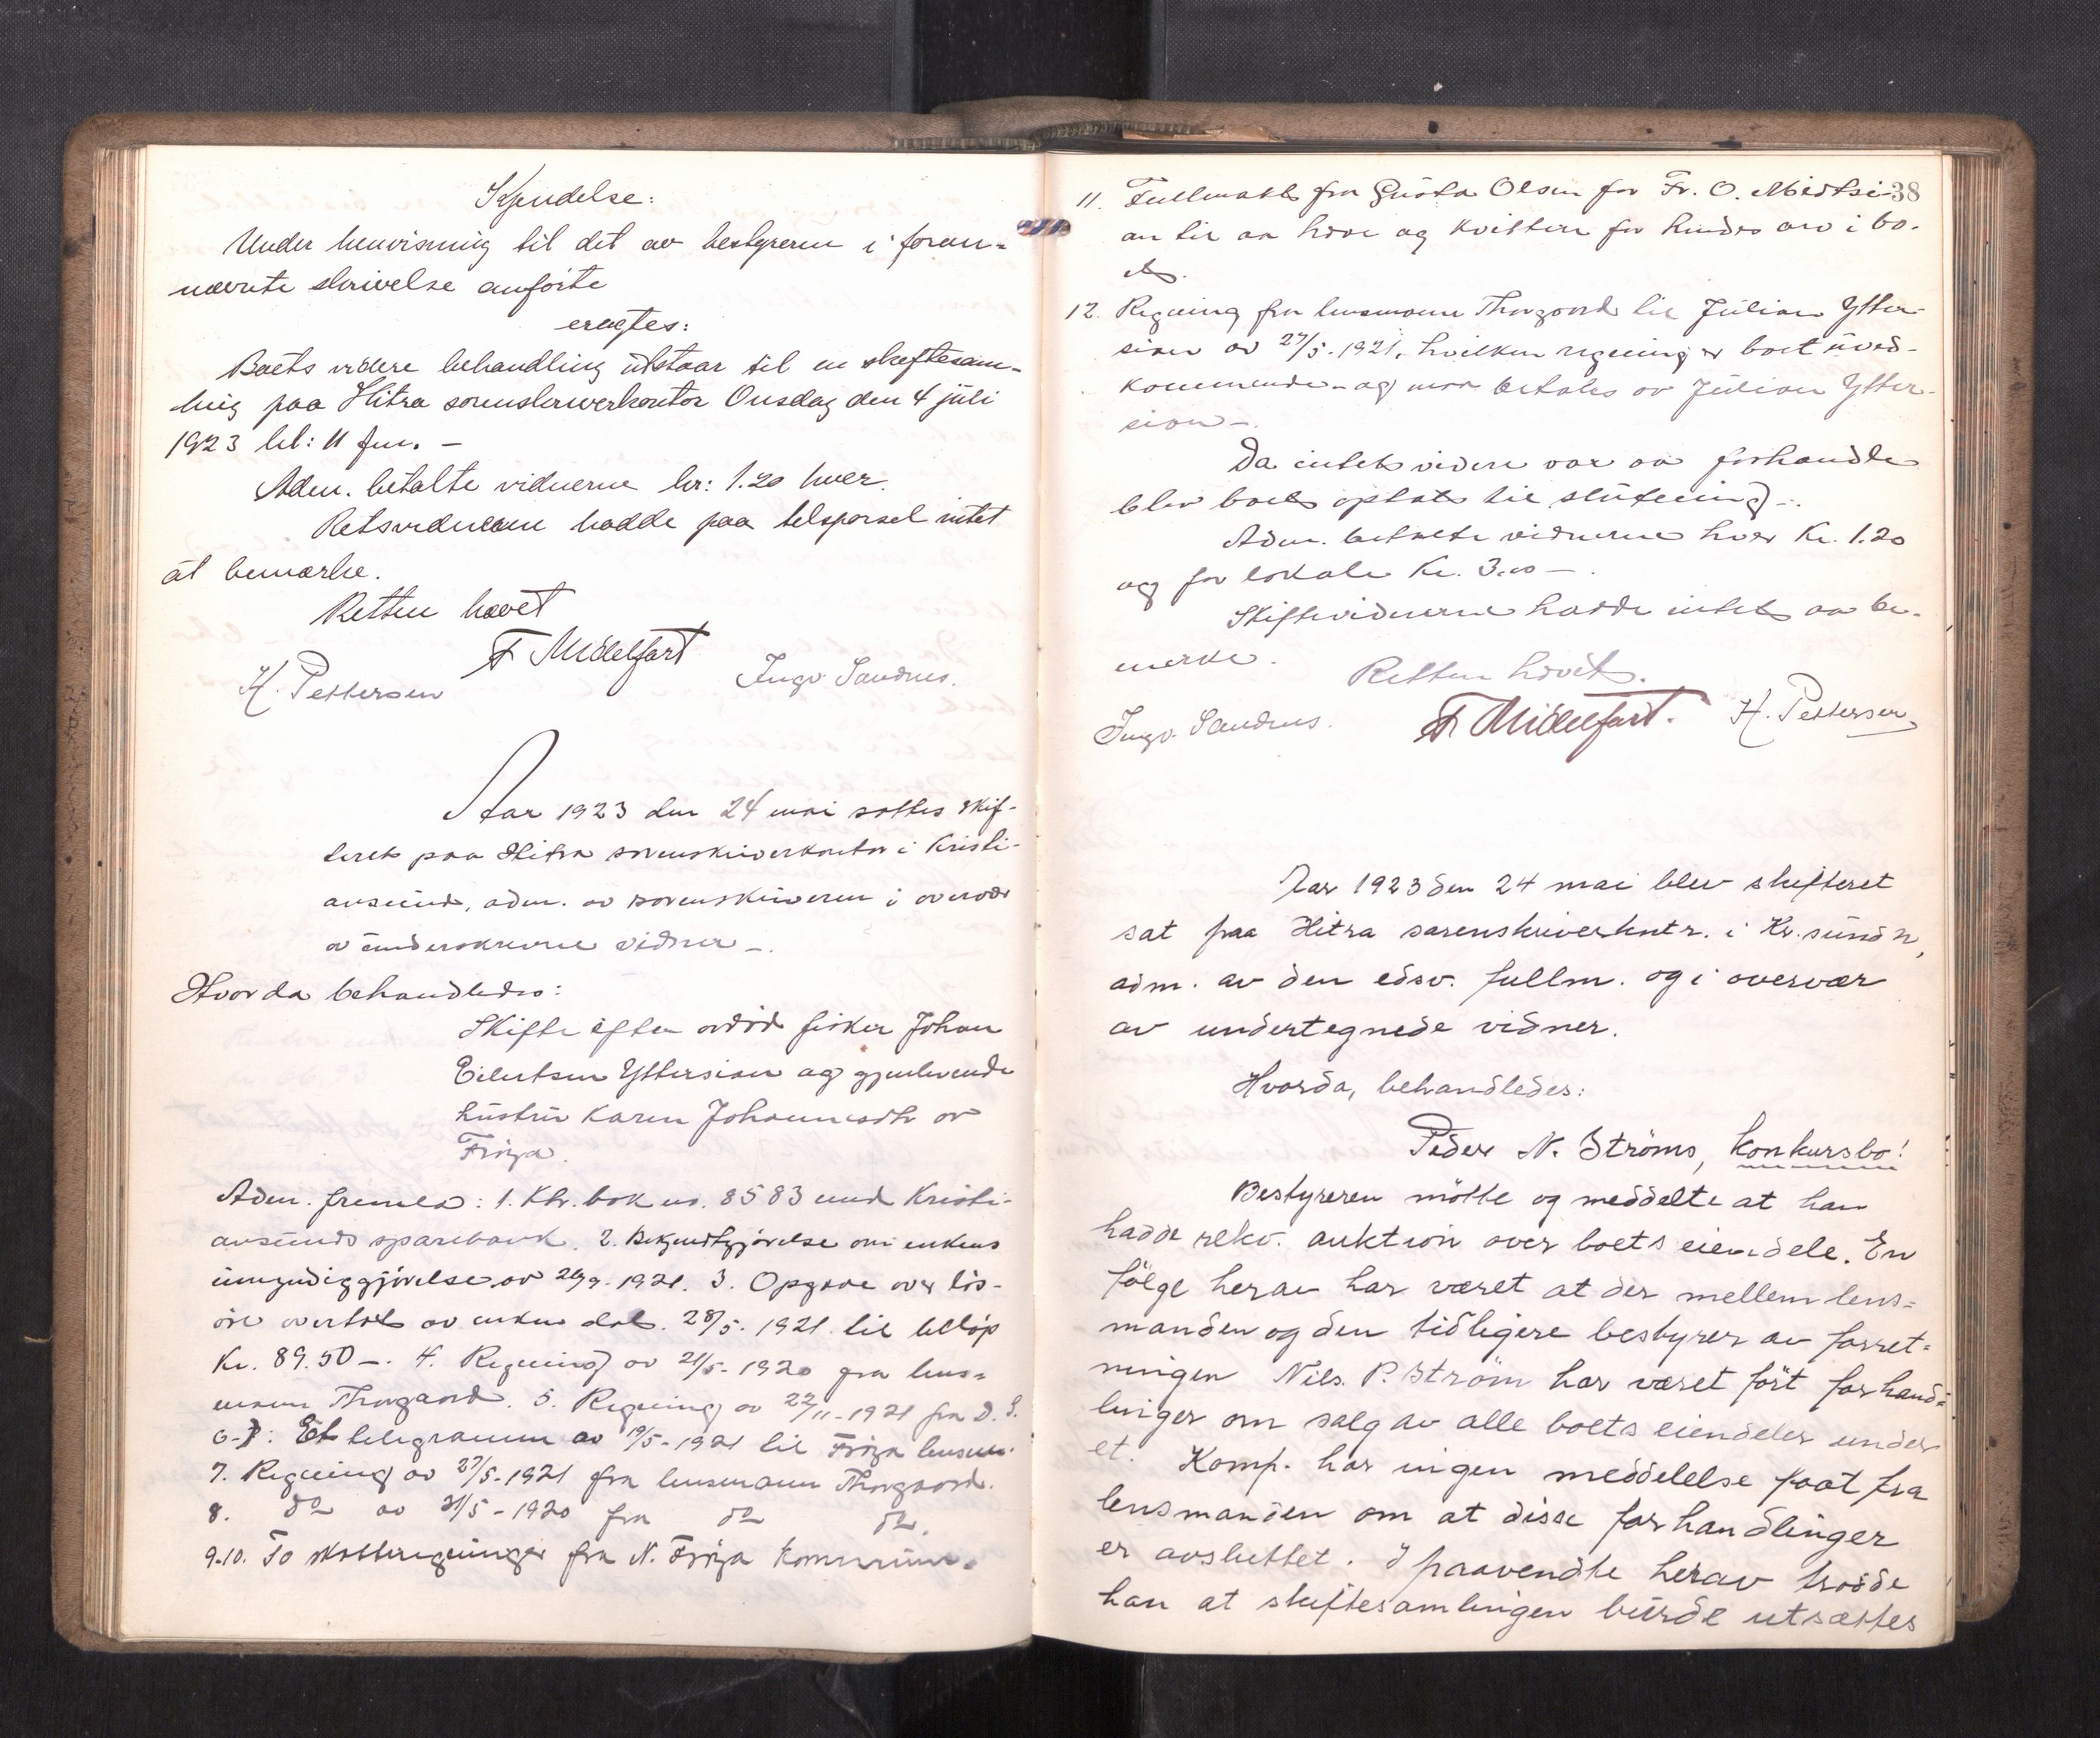 Kjendelse:
Under henvisning til det av bestyreren i foran-
nævnte skrivelse anførte
eragtes:
Boets videre behandling utstaar til en skiftesam-
ling paa Hitra sorenskriverkontor Onsdag den 4 juli
1923 kl: 11 fm. –
Adm. betalte vidnerne kr: 1.20 hver.
Retsvidnerne hadde paa tilspørsel intet
at bemærke.
Retten hævet
F Midelfart
H. Pettersen
Ingv. Sandnes.
Aar 1923 den 24 mai sattes skif-
teret paa Hitra sorenskriverkontor i Kristi-
ansund, adm. av sorenskriveren i overvær
av underskrevne vidner –.
Hvor da behandledes:
Skifte efter avdød fisker Johan
Eilertsen Yttersian og gjenlevende
hustru Karen Johannesdtr av
Frøya.
Adm. fremla: 1. Ktr. bok no. 8583 med Kristi-
ansunds sparebank. 2. Bekjendtgjørelse om enkens
umyndiggjørelse av 26/9-1921. 3. Opgave over løs-
øre overtat av enken dat. 28/5. 1921 til beløp
Kr. 89.50 –. 4. Regning av 21/5-1920 fra lens-
mann Thorgaard. 5. Regning av 22/11-1921 fra D. S.
6. Et telegramm av 19/5-1921 til Frøya lensm.
7. Regning av 27/5-1921 fra lensmann Thorgaard.
8. do av 31/5-1920 fra do do.
9.10. To skatteregninger fra N. Frøya kommune.
38
11. Fullmakt fra Gusta Olsen for Fr. O. Midtsi-
an til aa heve og kvittere for hendes arv i bo-
et.
12. Regning fra lensmann Thorgaard til Julian Ytter-
sian av 27/5-1921, hvilken regning er boet uved-
kommende – og maa betales av Julian Ytter-
sian –.
Da intet videre var aa forhandle
blev boet optat til slutning –.
Adm. betalte vidnerne hver Kr. 1.20
og for lokale Kr. 3.00 –.
Skiftevidnerne hadde intet aa be-
merke.
Retten hævet.
Ingv. Sandnes.
F. Midelfart.
H. Pettersen
Aar 1923 den 24 mai blev skifteret
sat paa Hitra sorenskriverkntr. i Kr.sund n,
adm. av den edsv. fullm. og i overvær
av undertegnede vidner.
Hvorda, behandledes:
Peder N. Ströms, konkursbo!
Bestyreren mötte og meddelte at han
hadde rekv. auktion over boets eiendele. En
fölge herav har været at der mellem lens-
manden og den tidligere bestyrer av forret-
ningen Nils P. Ström har været fört forhand-
linger om salg av alle boets eiendeler under
et. Komp. har ingen meddelelse faat fra
lensmanden om at disse forhandlinger
er avsluttet. I paavendte herav trodde
han at skiftesamlingen burde utsættes